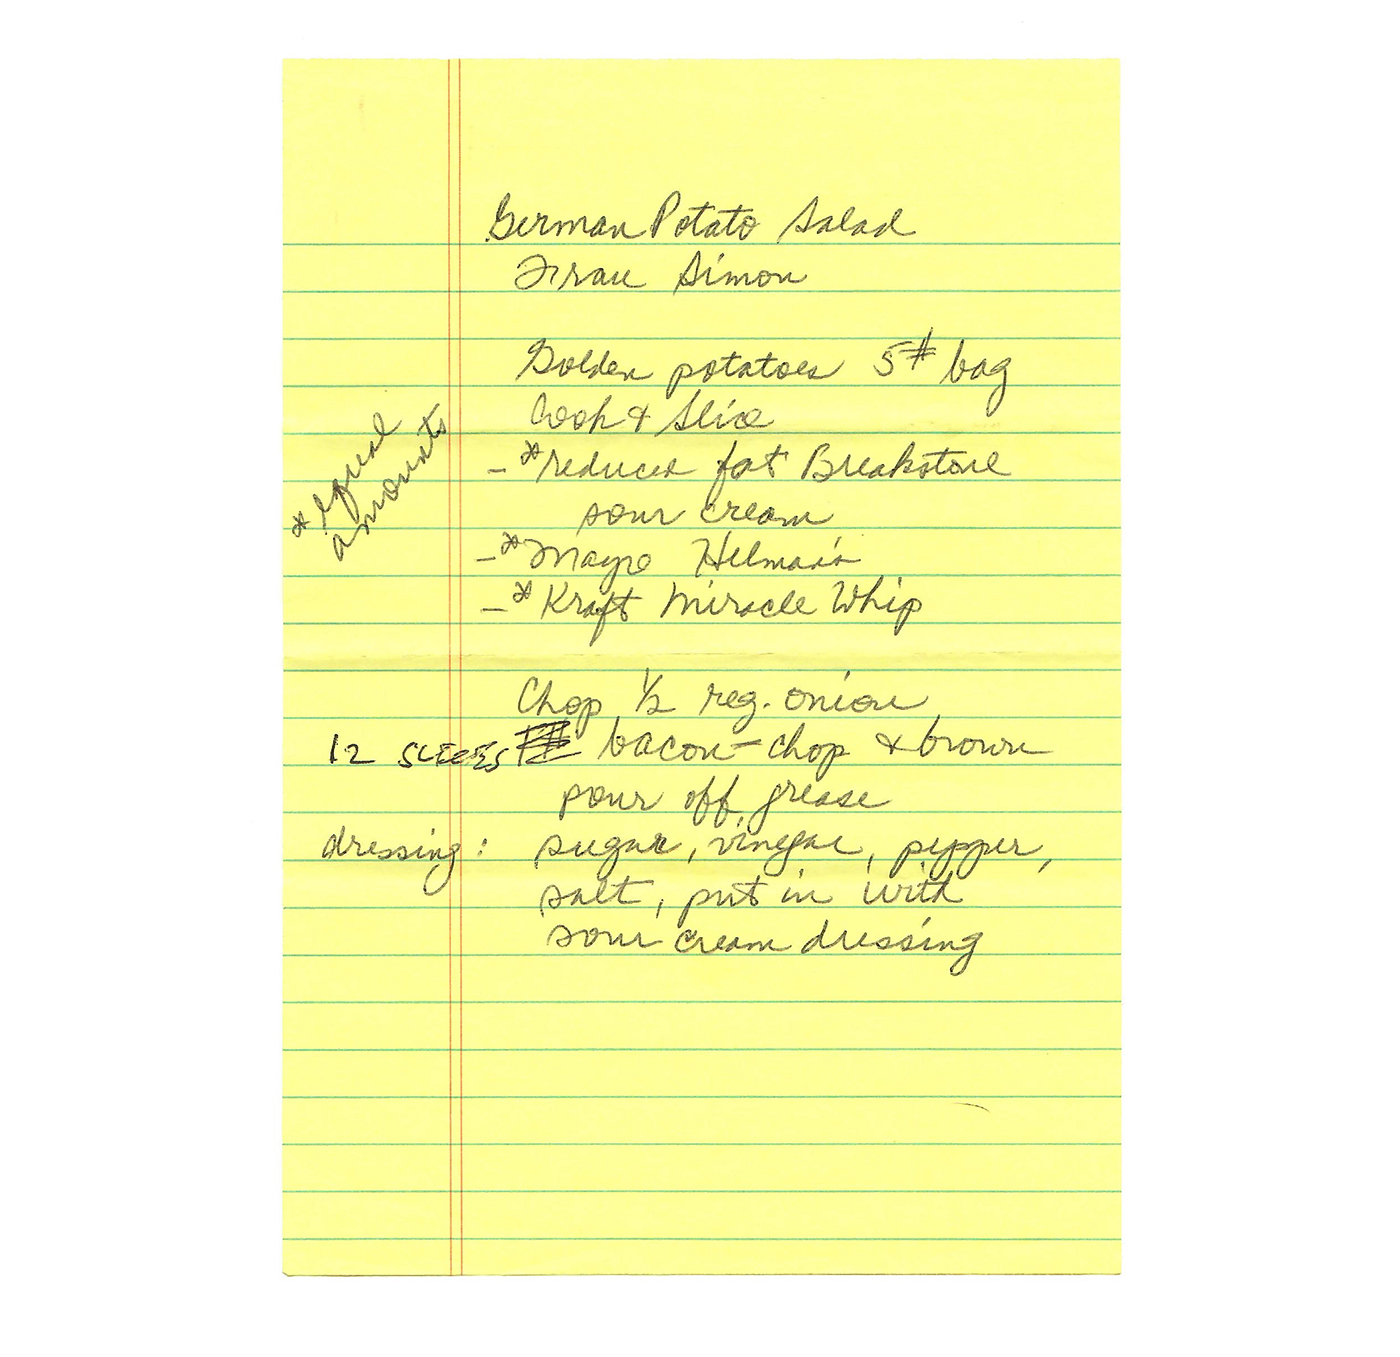 German Potato Salad
Frau Simon
Golden potatoes 5# bag
Cook & Slice
* equal
amounts
- *reduced fat Breakstone
sour cream
- *Mayo Helman's
- *Kraft Miracle Whip
Chop 1/2 reg. onion
12 SLICES bacon - chop & brown
pour off grease
dressing: sugar, vinegar, pepper,
salt, put in with
sour cream dressing